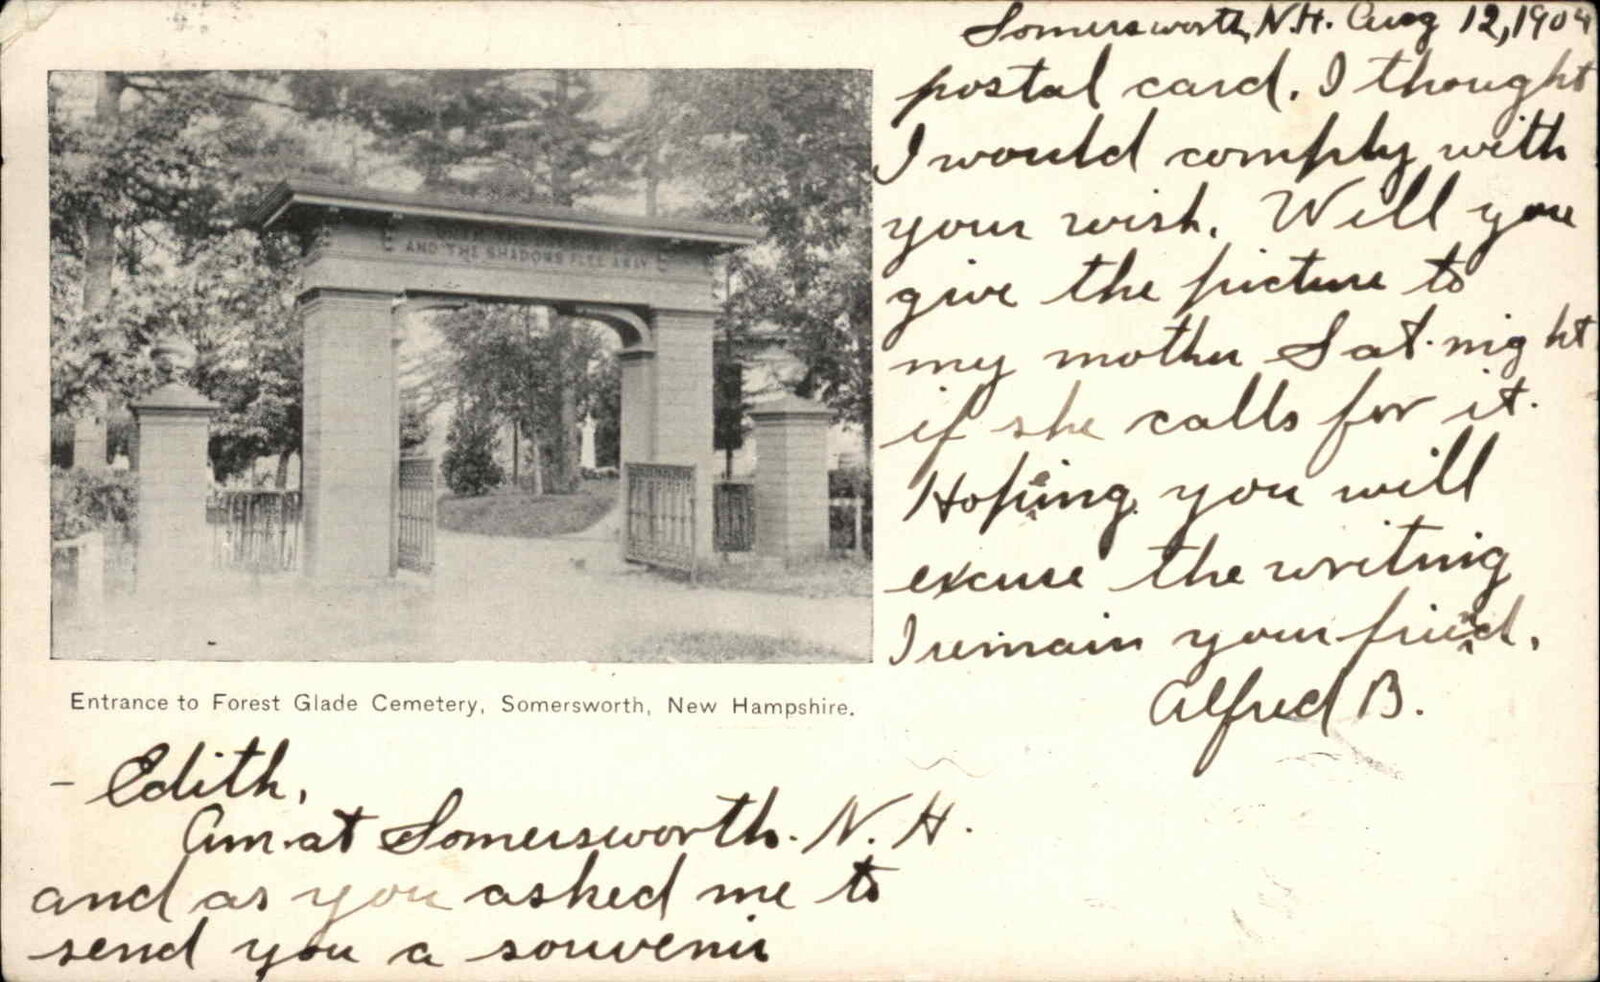 Somersworth, N.H. Aug 12, 1904
AND THE SHADOWS FLEE AWAY
Entrance to Forest Glade Cemetery, Somersworth, New Hampshire.
- Edith,
Am at Somersworth. N. H.
and as you asked me to
send you a souvenir
postal card. I thought
I would comply with
your wish. Will you
give the picture to
my mother Sat. night
if she calls for it.
Hoping you will
excuse the writing
I remain your friend.
Alfred B.